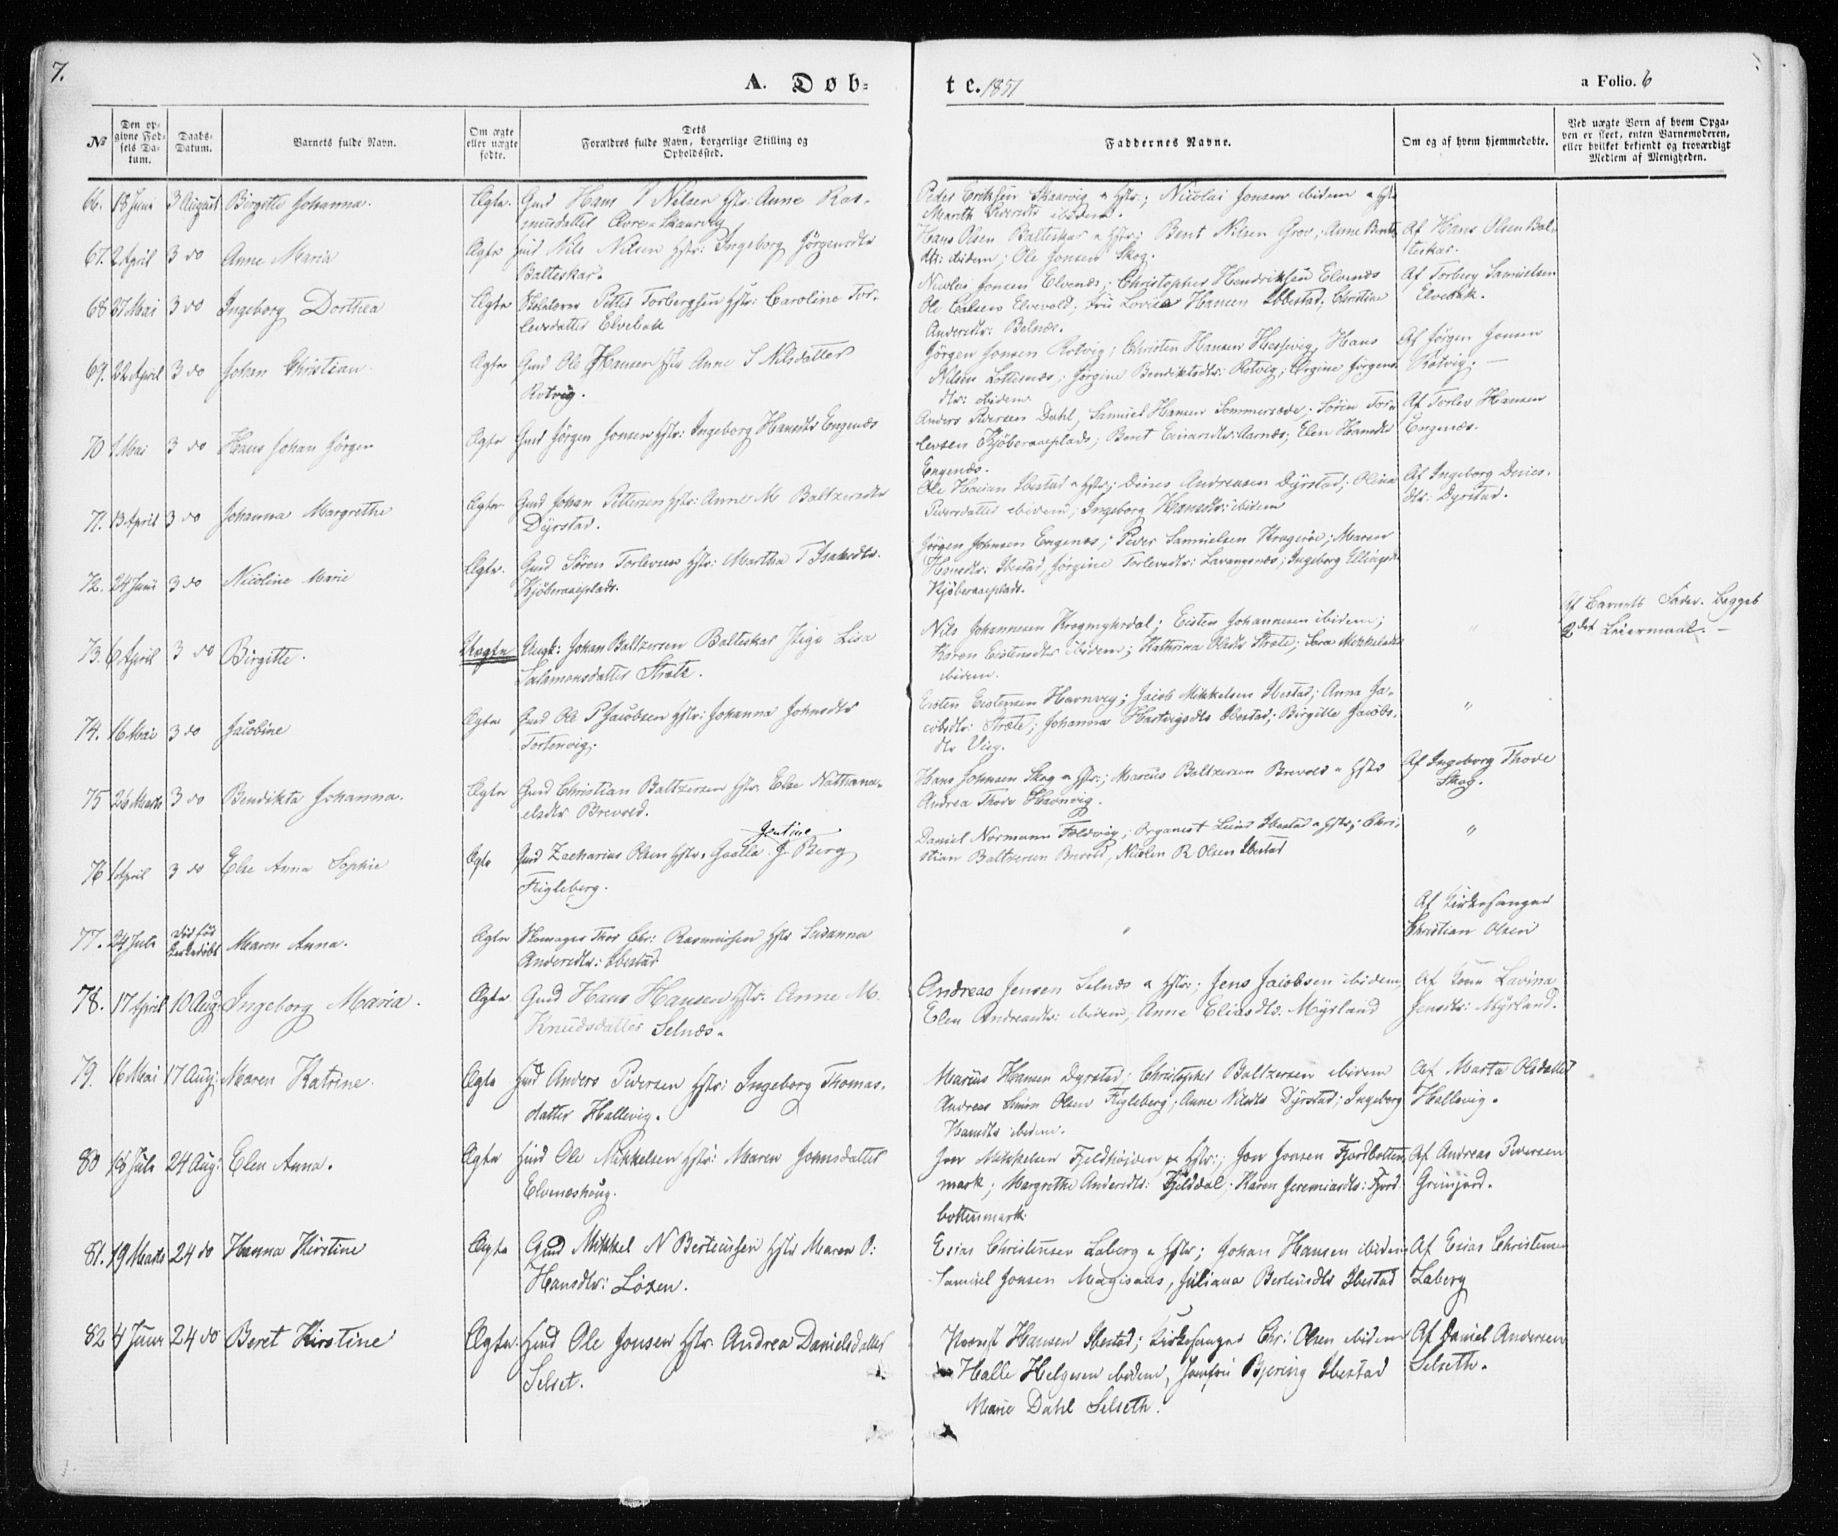 7.
A. Døb-
te. 1851
a Folio. 6
№
Den op-
givne Fød-
sels Da-
tum.
Daabs-
Datum.
Barnets fulde Navn.
Om ægte
eller uægte
fødte.
Dets
Forældres fulde Navn, borgerlige Stilling og
Opholdssted.
Faddernes Navne.
Om og af hvem hjemmedøbte.
Ved uægte Børn af hvem Opga-
ven er skeet, enten Barnemoderen,
eller hvilket bekjendt og troværdigt
Medlem af Menigheden.
66. 18 Juni 3 August Birgitte Johanna. Ægte. Gmd Hans P Nilsen Hstr: Anne Ras-
musdatter Øvre Skaarvig
Peder Eriksen Skaarvig & Hstr; Nicolai Jonsen ibidem & Hstr
Marith Pedersdtr ibidem.
67. 2 April 3 do Anne Maria Ægte Hmd Nils Nilsen Hstr: Ingeborg Jørgensdtr
Balteskar.
Hans Olsen Balteskar & Hstr; Bent Nilsen Grov, Anne Bents-
dtr: ibidem; Ole Jonsen Skog.
Af Hans Olsen Bal-
teskar.
68 27 Mai 3 do Ingeborg Dorthea Ægte Skolelærer Petter Torbergsen Hstr: Caroline Tor-
levsdatter Elvebak
Nicolai Jonsen Elvenæs; Christopher Hendriksen Elvenæs
Ole Carlsen Elvevold; Fru Lovise Hansen Ibbestad; Christine
Andersdtr: Belnæs.
Af Torberg Samuelsen
Elvebak.
69. 22 April 3 do Johan Christian. Ægte Gmd Ole Hansen Hstr Anne S Nilsdatter
Rotvig.
Jørgen Jonsen Rotvig; Christen Hansen Hessevig; Hans
Nilsen Lottenæs; Jørgine Bendiktsdtr: Rotvig; Jørgine Jørgens
dtr: ibidem
Af Jørgen Jonsen
Rotvig. —
70 1 Mai 3 do Hans Johan Jørgen Ægte Gmd Jørgen Jonsen Hstr: Ingeborg Hansdtr Engenæs
Anders Pedersen Dahl, Samuel Hansen Sommersæde; Søren Tor-
levsen Kjøberaaeplads; Beret Einarsdtr: Aarnæs; Elen Hansdtr
Engenæs.
Af Torlev Hansen
Engenæs.
71. 13 April 3 do Johanna Margrethe Ægte. Gmd Johan Pettersen Hstr: Anne M Baltzersdtr
Dyrstad.
Ole Hansen Ibestad & Hstr; Deines Andreasen Dyrstad; Olina
Pedersdatter ibidem; Ingeborg Hansdtr: ibidem
Af Ingeborg Deines-
dtr: Dyrstad.
72. 24 Juni 3 do Nicoline Marie Ægte. Gmd Søren Torlevsen Hstr: Martha T Isaksdtr.
Kjøberaaeplads.
Jørgen Johnsen Engenæs; Peder Samuelsen Kragerøe; Maren
Hansdtr: Ibestad; Jørgine Torlevsdtr: Lavangsnæs; Ingeborg Ellingsdtr
Kjøberaaeplads.
73. 6 April 3 do Birgitte. Uægte Ungk: Johan Baltzersen Balteskar Pige Lisa
Salamonsdatter Stræte.
Nils Johannesen Krogmyhrdal; Eisten Johannesen ibidem;
Karen Eistensdtr ibidem; Kathrina Olsdtr Stræte; Sara Mikkelsdtr
ibidem.
"
Af Barnets Fader. Begges
2det Leiermaal. —
74. 16 Mai 3 do Jacobine Ægte Gmd Ole P Jacobsen Hstr: Johanna Johnsdtr
Tortenvig.
Eisten Eistensen Havnvig; Jacob Mikkelsen Ibestad; Anna Ja-
cobsdtr: Stræte; Johanna Hartvigsdtr Ibestad; Birgitte Jacobs-
dtr Vig.
"
75 26 Marts 3 do Bendikta Johanna. Ægte Gmd Christian Baltzersen Hstr: Else Nathana-
elsdtr Brevold.
Hans Johnsen Skog & Hstr:; Marcus Baltzersen Brevold & Hstr
Andrea Thode Havnvig.
Af Ingeborg Thode
Skog.
76 1 April 3 do Else Anna Sophie Ægte Gmd Zacharius Olsen Hstr: Gjertine J. Berg
Fugleberg.
Daniel Normann Foldvig; Organist Lund Ibestad & Hstr; Chri-
stian Baltzersen Brevold, Nicolen R Olsen Ibestad
"
77. 24 Juli Maren Anna. Ægte Skomager Thor Chr: Rasmussen Hstr Susanna
Andersdtr: Ibestad
"
Af Kirkesanger
Christian Olsen
78. 17 April 10 Aug Ingeborg Maria. Ægte Gmd Hans Hansen Hstr: Anne M.
Knudsdatter Selnæs.
Andreas Jensen Selnæs & Hstr; Jens Jacobsen ibidem
Elen Andreasdtr: ibidem, Anne Eliasdtr. Myrland
Af Kone Lavina
Jensdtr: Myrland.
79. 16 Mai 17 Aug: Maren Katrine. Ægte Hmd Anders Pedersen Hstr: Ingeborg Thomas-
datter Hallevig.
Marcus Hansen Dyrstad; Christopher Baltzersen ibidem
Andreas Simon Olsen Fugleberg; Anne Nilsdtr Dyrstad; Ingeborg
Hansdtr ibidem.
Af Marta Olsdatter
Hallevig.
80 18 Juli 24 Aug: Elen Anna. Ægte Hmd Ole Mikkelsen Hstr: Maren Johnsdatter
Elveneshoug.
Iver Mikkelsen Fjeldhøiden & Hstr:; Jon Jonsen Fjordbotten
mark; Margrethe Andersdtr: Fjelddal; Karen Jeremiasdtr: Fjord
bottenmark.
Af Andreas Pedersen
Grønjord.
81. 19 Marts 24 do Hanna Kirstine Ægte Gmd Mikkel N Berteussen Hstr Maren O:
Hansdtr: Løxen.
Esias Christensen Laberg & Hstr; Johan Hansen ibidem
Samuel Jonsen Magisans, Juliana Berteusdtr Ibestad
Af Esias Christensen
Laberg
82 4 Juni 24 do Beret Kirstine Ægte. Hmd Ole Jonsen Hstr: Andrea Danielsdatter
Selset.
Provst Hansen Ibestad; Kirkesanger Chr: Olsen ibidem
Halle Helgesen ibidem, Jomfru Bjering Ibestad
Marie Dahl Selseth.
Af Daniel Andersen
Selseth.